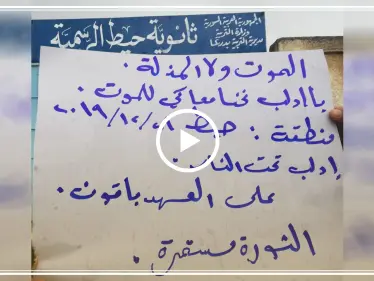 الجمهورية العربية السورية
وزارة التربية
مديرية التربية بدرعا
ثانوية حيط الرسمية
الموت ولا المذلة .
يا ادلب نحنا معاكي للموت .
منطقة : حيط ٢٠١٩/١٢/٢١
إدلب تحت النار .
على العهد باقون .
الثورة مستمرة .